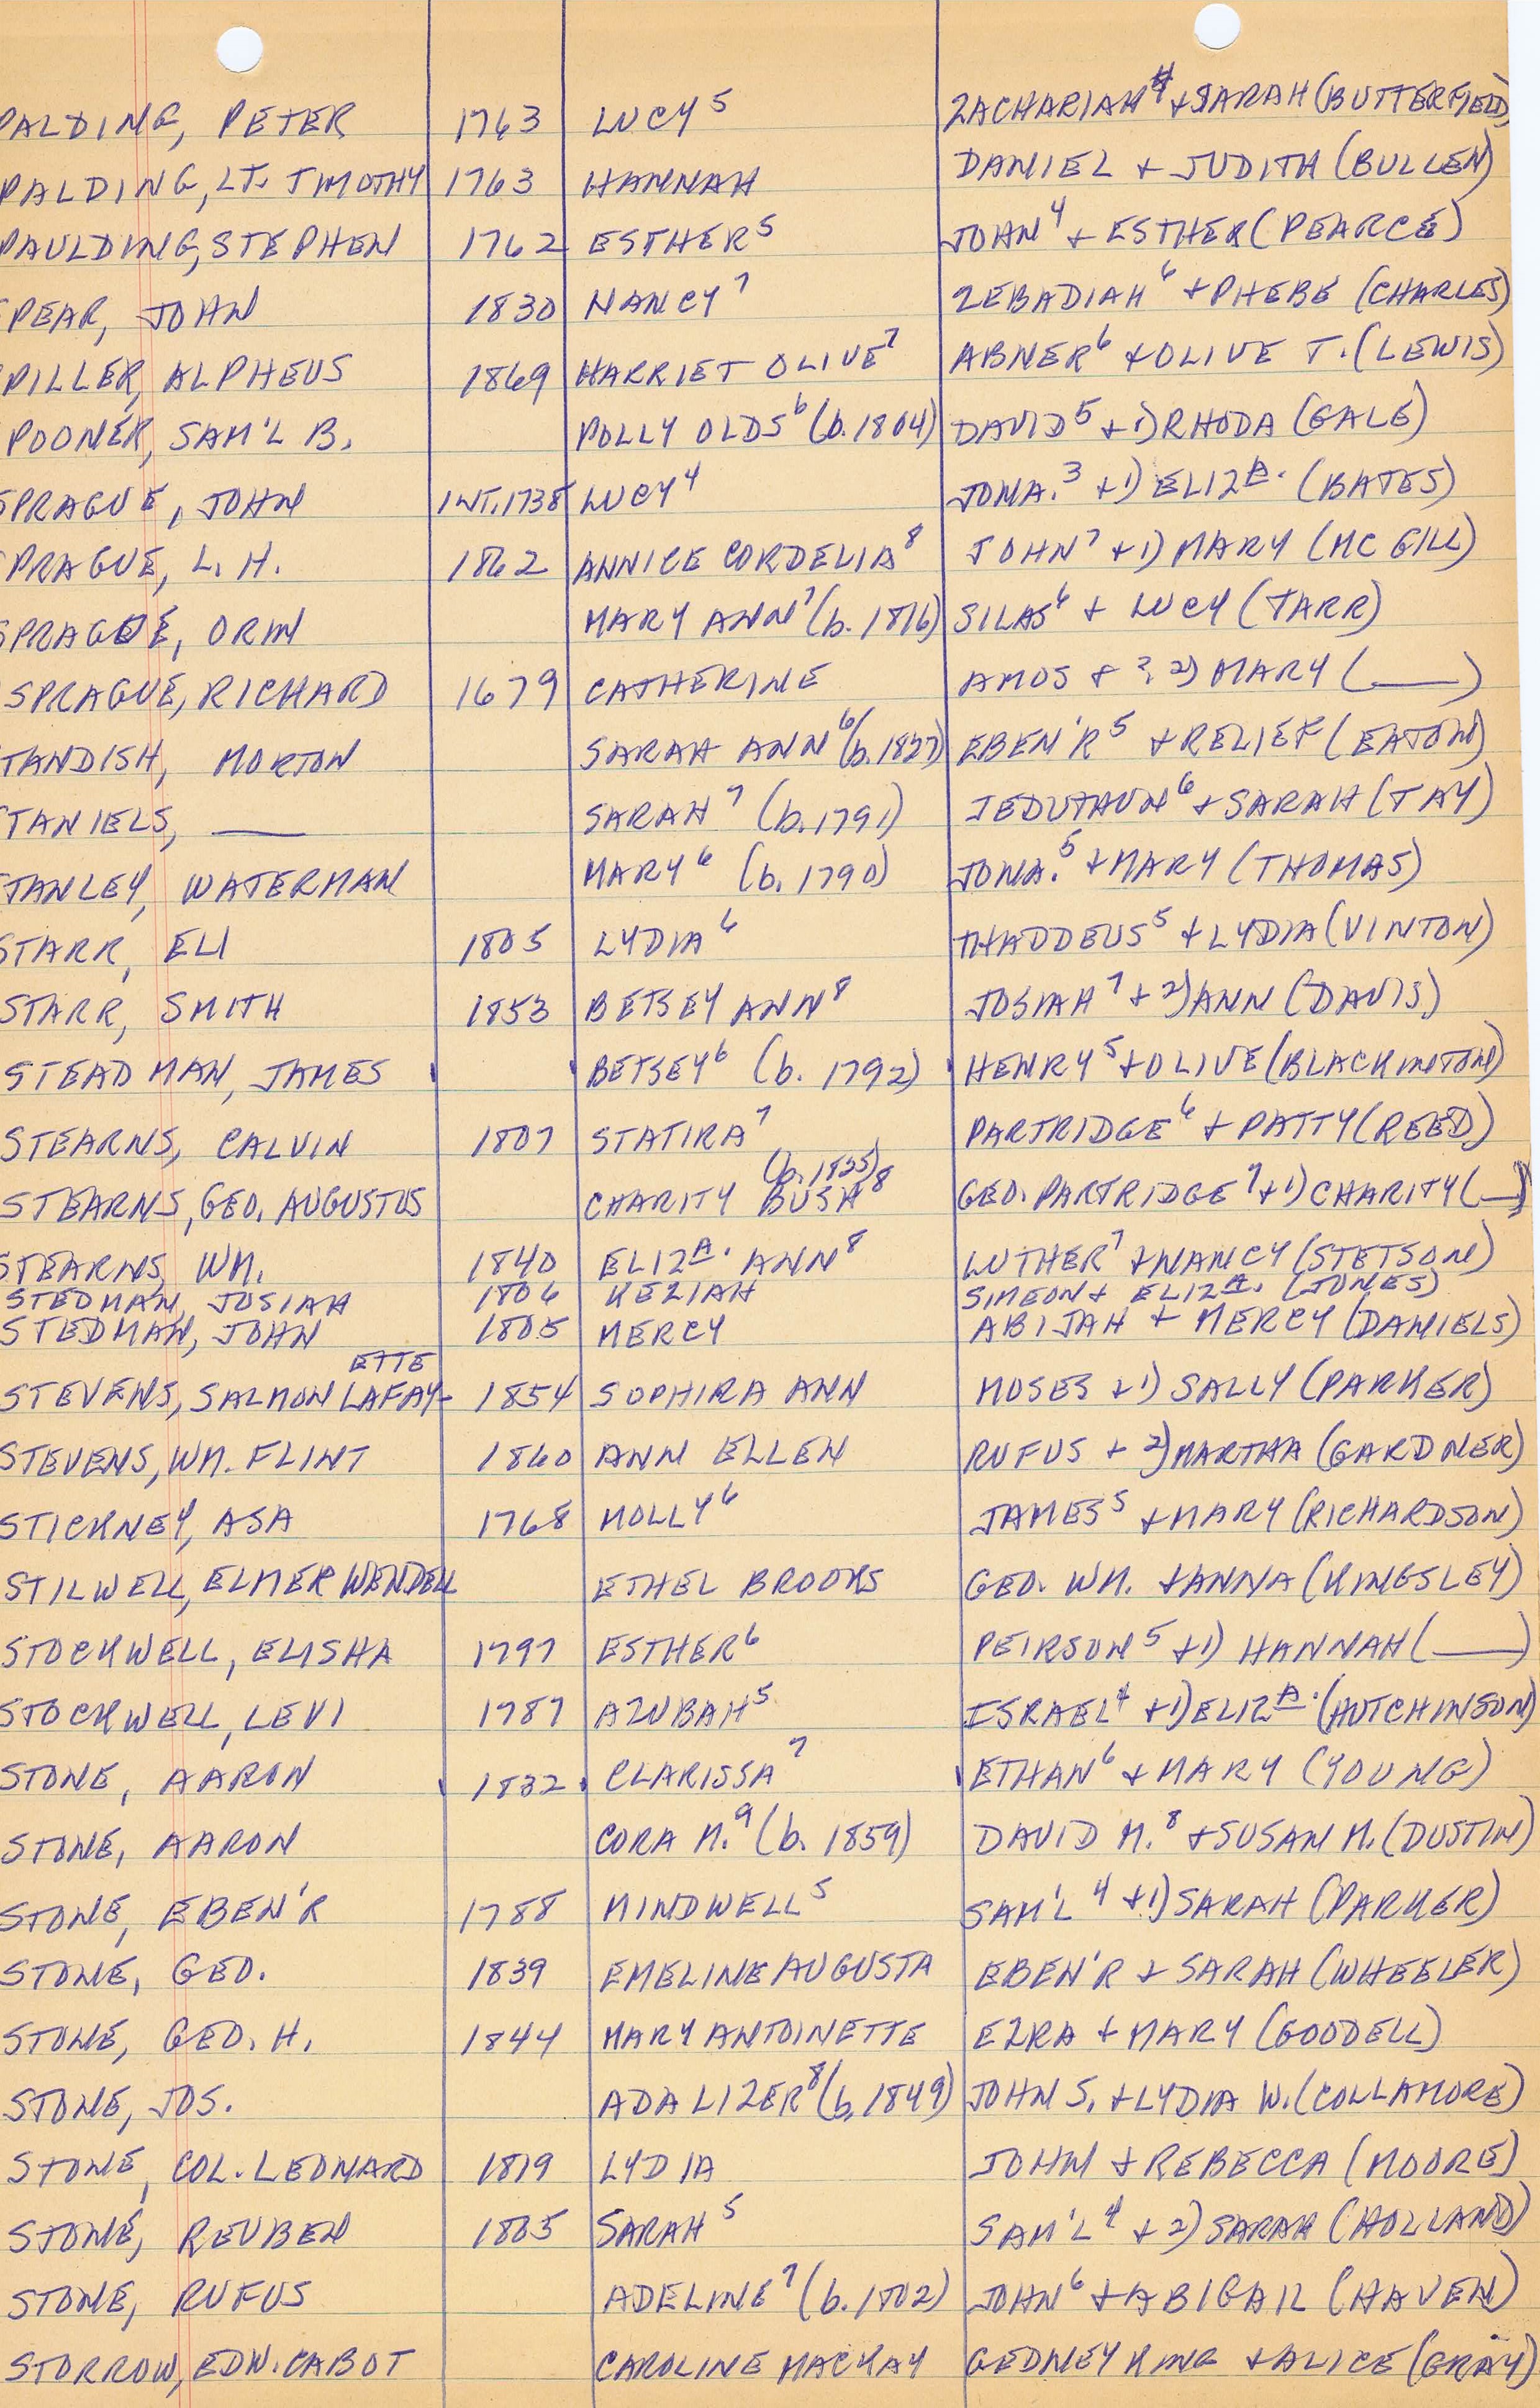 PALDING, PETER 1763 LUCY⁵ ZACHARIAH⁴ + SARAH (BUTTERFIELD)
PALDING, LT. TIMOTHY 1763 HANNAH DANIEL + JUDITH (BULLEN)
PAULDING, STEPHEN 1762 ESTHER⁵ JOHN⁴ + ESTHER (PEARCE)
PEAR, JOHN 1830 NANCY⁷ ZEBADIAH⁶ + PHEBE (CHARLES)
PILLER, ALPHEUS 1869 HARRIET OLIVE⁷ ABNER⁶ + OLIVE T. (LEWIS)
POONER, SAM'L B. POLLY OLDS⁶ (b. 1804) DAVID⁵ + 1) RHODA (GALE)
SPRAGUE, JOHN INT. 1738 LUCY⁴ JONA.³ + 1) ELIZᴬ. (BATES)
PRAGUE, L. H. 1862 ANNICE CORDELIA⁸ JOHN⁷ + 1) MARY (MC GILL)
SPRAGUE, ORIN MARY ANN⁷ (b. 1816) SILAS⁶ + LUCY (TARR)
SPRAGUE, RICHARD 1679 CATHERINE AMOS + ?, 2) MARY (___)
TANDISH, MORTON SARAH ANN⁶ (b. 1827) EBEN'R⁵ + RELIEF (EATON)
TANIELS, ___ SARAH⁷ (b. 1791) JEDUTHUN⁶ + SARAH (TAY)
TANLEY, WATERMAN MARY⁶ (b. 1790) JONA.⁵ + MARY (THOMAS)
STARR, ELI 1805 LYDIA⁶ THADDEUS⁵ + LYDIA (VINTON)
STARR, SMITH 1853 BETSEY ANN⁸ JOSIAH⁷ + 2) ANN (DAVIS)
STEADMAN, JAMES BETSEY⁶ (b. 1792) HENRY⁵ + OLIVE (BLACKINTON)
STEARNS, CALVIN 1807 STATIRA⁷ PARTRIDGE⁶ + PATTY (REED)
(b. 1835)
STEARNS, GEO. AUGUSTUS CHARITY BUSH⁸ GEO. PARTRIDGE⁷ + 1) CHARITY (___)
STEARNS, WM. 1840 ELIZᴬ. ANN⁸ LUTHER⁷ + NANCY (STETSON)
STEDMAN, JOSIAH 1806 KEZIAH SIMEON + ELIZᴬ. (JONES)
STEDMAN, JOHN 1805 MERCY ABIJAH + MERCY (DANIELS)
ETTE
STEVENS, SALMON LAFAY- 1854 SOPHIRA ANN MOSES + 1) SALLY (PARKER)
STEVENS, WM. FLINT 1860 ANN ELLEN RUFUS + 2) MARTHA (GARDNER)
STICKNEY, ASA 1768 MOLLY⁶ JAMES⁵ + MARY (RICHARDSON)
STILWELL, ELMER WENDELL ETHEL BROOKS GEO. WM. + ANNA (KINGSLEY)
STOCKWELL, ELISHA 1797 ESTHER⁶ PEIRSON⁵ + 1) HANNAH (___)
STOCKWELL, LEVI 1787 AZUBAH⁵ ISRAEL⁴ + 1) ELIZᴬ. (HUTCHINSON)
STONE, AARON 1832 CLARISSA⁷ ETHAN⁶ + MARY (YOUNG)
STONE, AARON CORA M.⁹ (b. 1859) DAVID M.⁸ + SUSAN M. (DUSTIN)
STONE, EBEN'R 1788 MINDWELL⁵ SAM'L⁴ + 1) SARAH (PARKER)
STONE, GEO. 1839 EMELINE AUGUSTA EBEN'R + SARAH (WHEELER)
STONE, GEO. H. 1844 MARY ANTOINETTE EZRA + MARY (GOODELL)
STONE, JOS. ADA LIZER⁸ (b. 1849) JOHN S. + LYDIA W. (COLLAMORE)
STONE, COL. LEONARD 1819 LYDIA JOHN + REBECCA (MOORE)
STONE, REUBEN 1805 SARAH⁵ SAM'L⁴ + 2) SARAH (HOLLAND)
STONE, RUFUS ADELINE⁷ (b. 1802) JOHN⁶ + ABIGAIL (HAVEN)
STORROW, EDW. CABOT CAROLINE MACKAY GEDNEY KING + ALICE (GRAY)